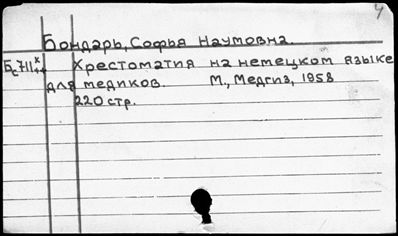 4
Бондарь, Софья Наумовна.
Хрестоматия на немецком языке
для медиков. М., Медгиз, 1958
220 стр.